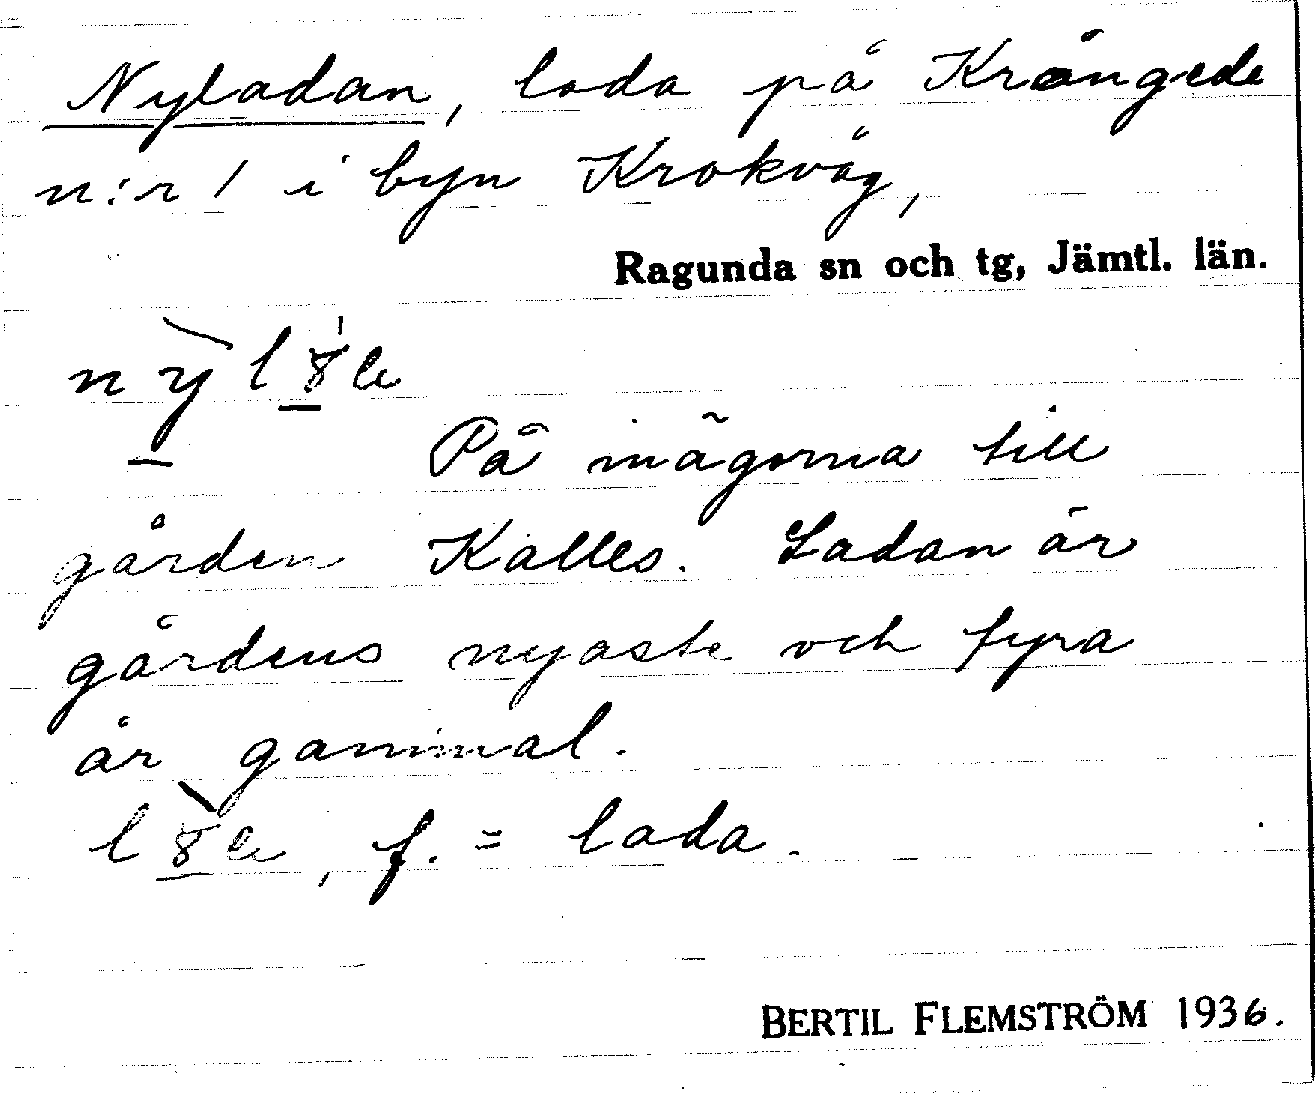 Nyladan, lada på Krångede
n:r 1 i byn Krokvåg,
Ragunda sn och tg, Jämtl. län.
På mägorna till
gården Kalles. Ladan är
gårdens nyaste och fyra
år gammal.
f. = lada.
BERTIL FLEMSTRÖM 1936.